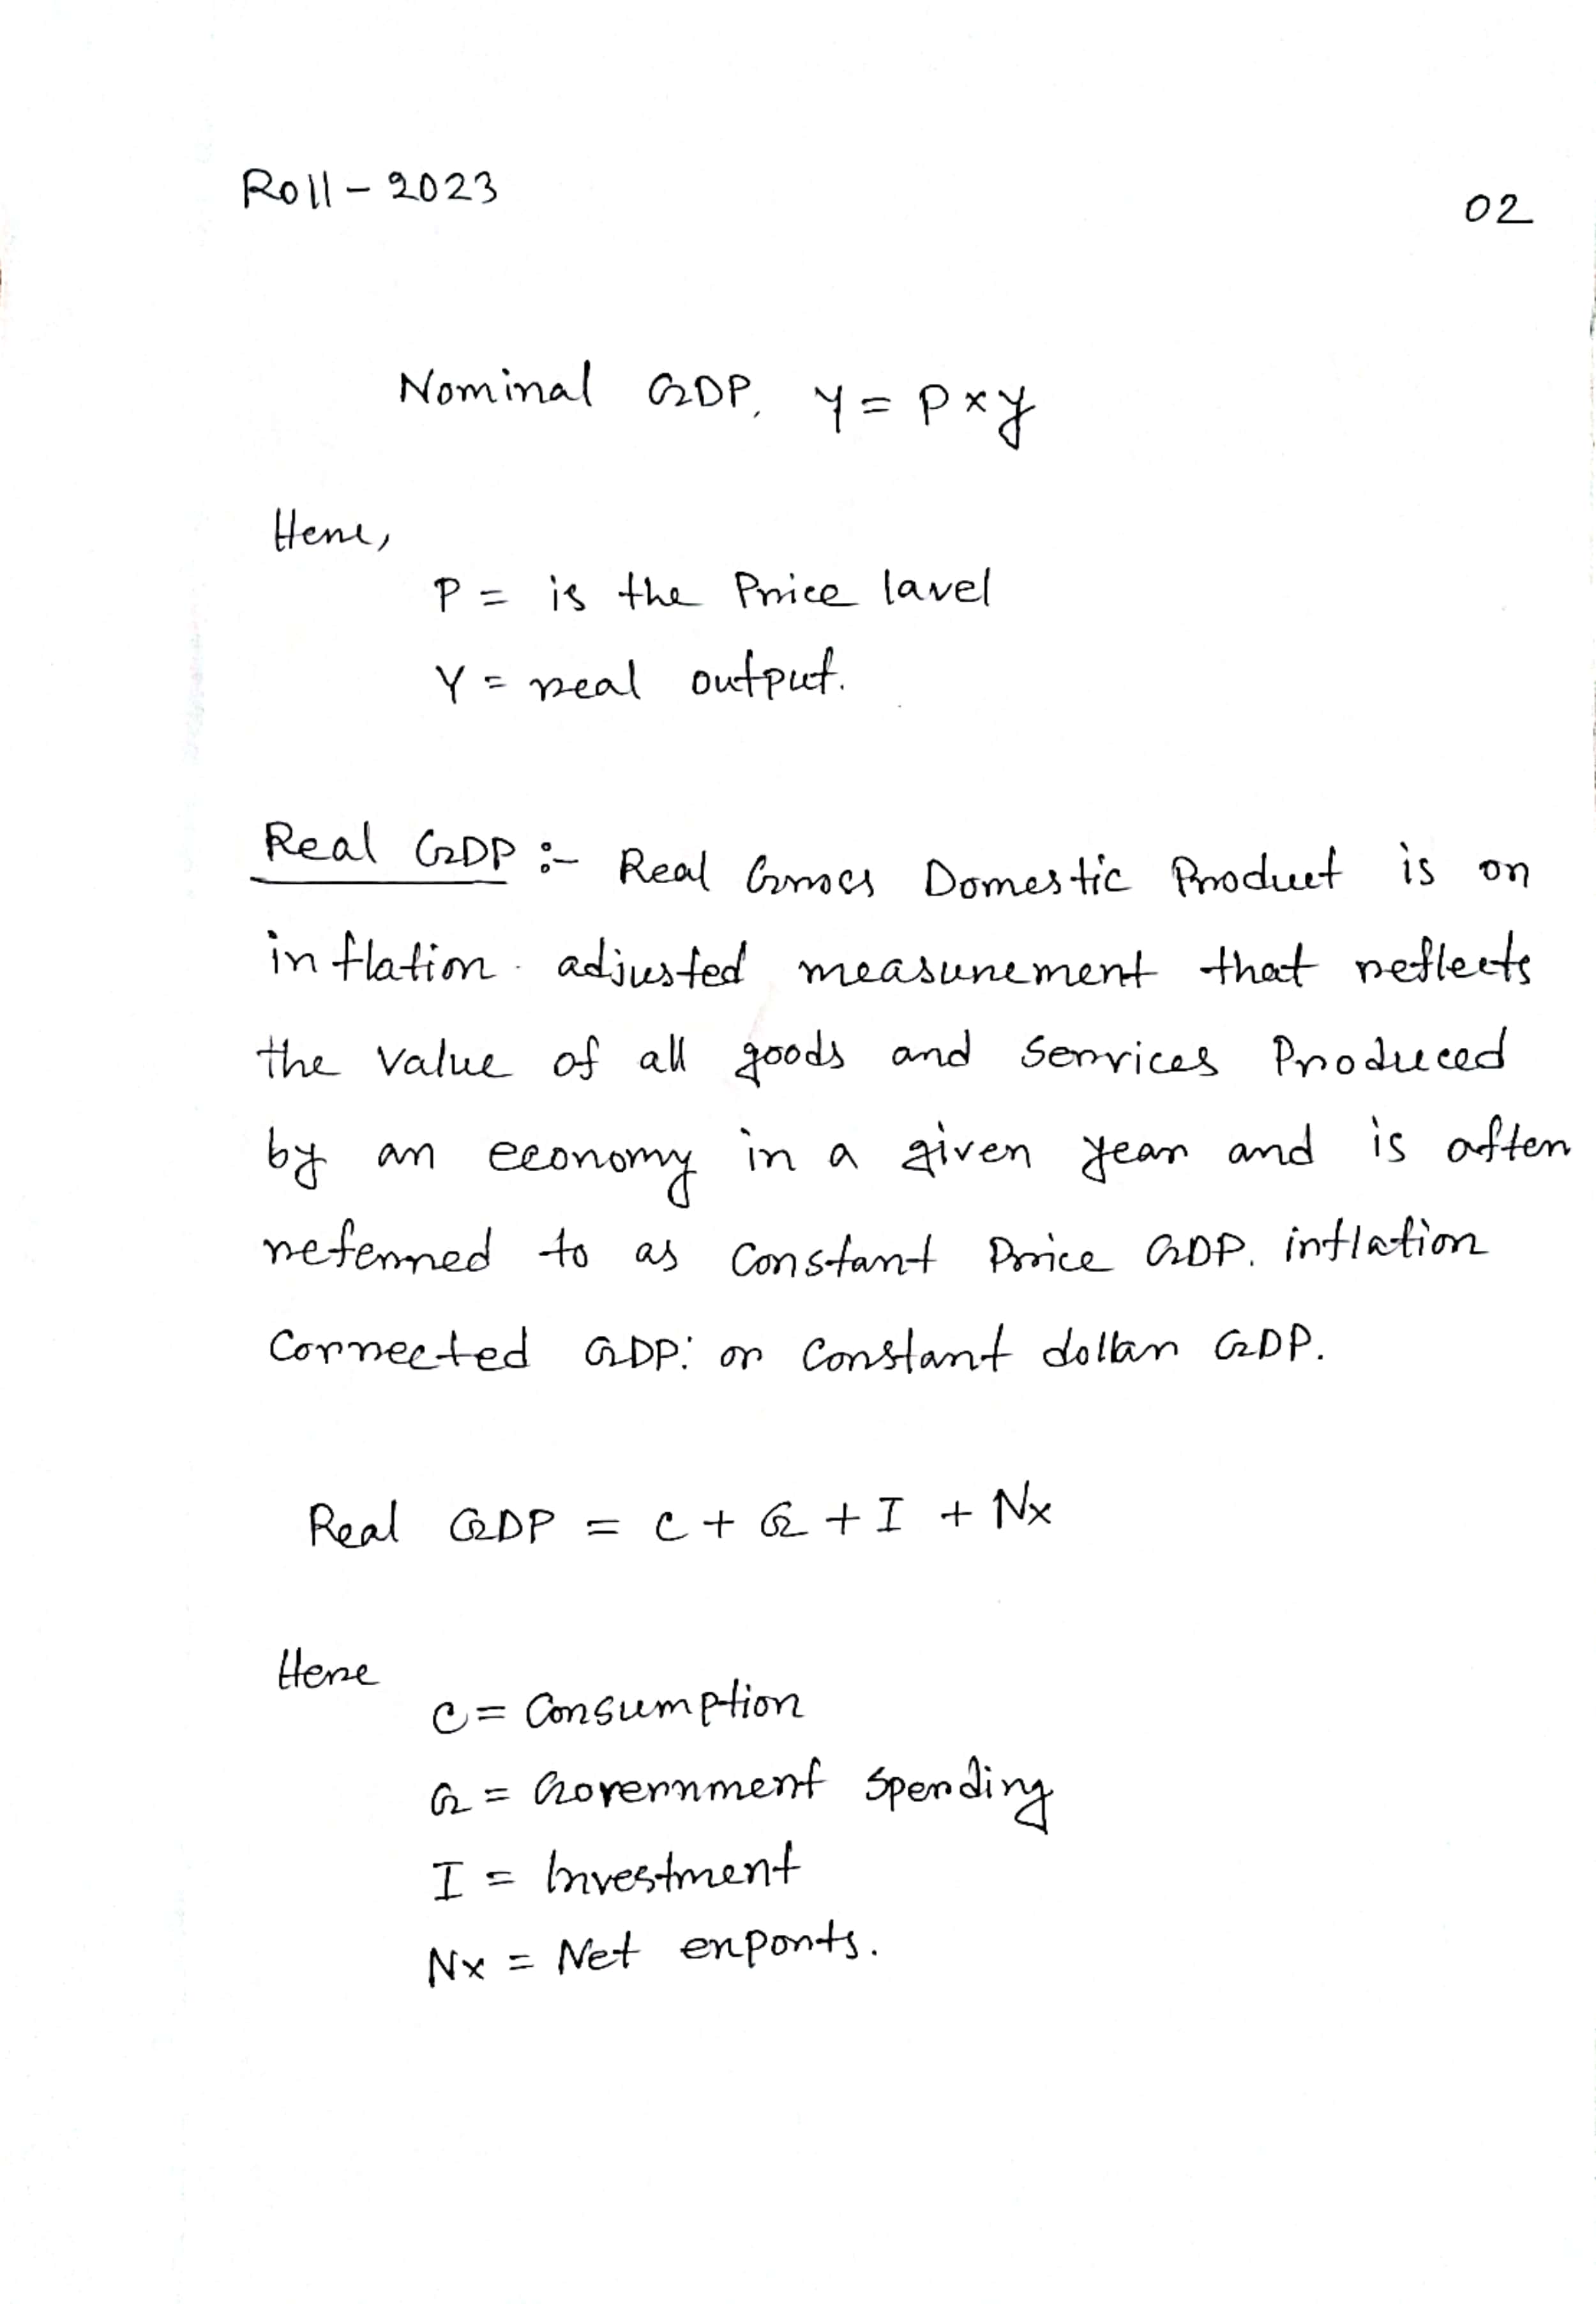 Roll - 2023
02
Nominal GDP, Y = P × y
Here,
P = is the Price lavel
Y = real output.
Real GDP :- Real Gross Domestic Product is on
inflation. adjusted measurement that reflects
the Value of all goods and Services Produced
by an economy in a given year and is often
referred to as Constant Price GDP. inflation
Corrected GDP: or Constant dollar GDP.
Real GDP = C + G + I + Nx
Here
C = Consumption
G = Government Spending
I = Investment
Nx = Net exports.